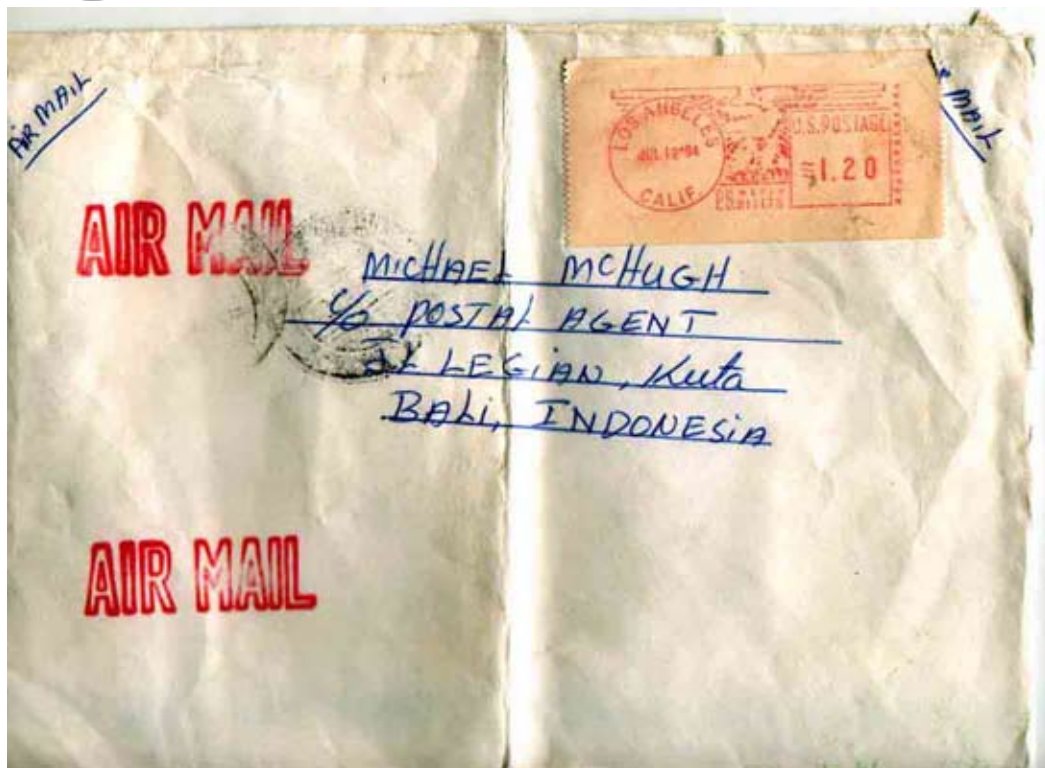 AIR MAIL
AIR MAIL
LOS ANGELES
JUL 12 '84
CALIF
U.S. POSTAGE
1.20
AIR MAIL
MICHAEL MCHUGH
c/o POSTAL AGENT
JL LEGIAN, Kuta
BALI, INDONESIA
AIR MAIL